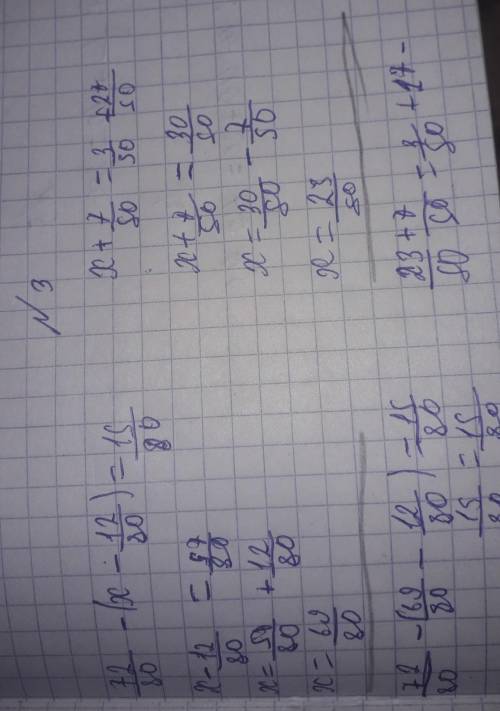 N 3
72/80 - (x - 12/80) = 15/80
x - 12/80 = 57/80
x = 57/80 + 12/80
x = 69/80
72/80 - (69/80 - 12/80) = 15/80
15/80 = 15/80
x + 7/50 = 3/50 + 27/50
x + 7/50 = 30/50
x = 30/50 - 7/50
x = 23/50
23/50 + 7/50 = 3/50 + 27